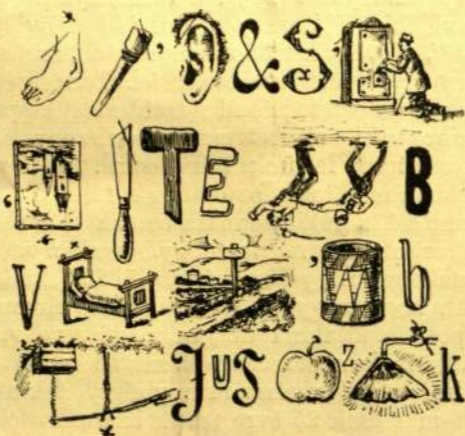 ’ & S ’
‘ T E B
V ’ b
JUT z K